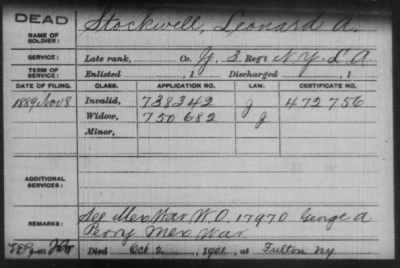 DEAD
NAME OF SOLDIER: Stockwell, Leonard A.
SERVICE: Late rank, Co. G, 3 Reg't N.Y. L.A.
TERM OF SERVICE: Enlisted , 1 Discharged , 1
DATE OF FILING. CLASS. APPLICATION NO. LAW. CERTIFICATE NO.
1889 Nov 8 Invalid, 738342 J 472756
Widow, 750682 J
Minor,
ADDITIONAL SERVICES:
REMARKS: See Mex War W.O. 17970 George A
Perry Mex War
Died Oct 2, 1901, at Fulton NY